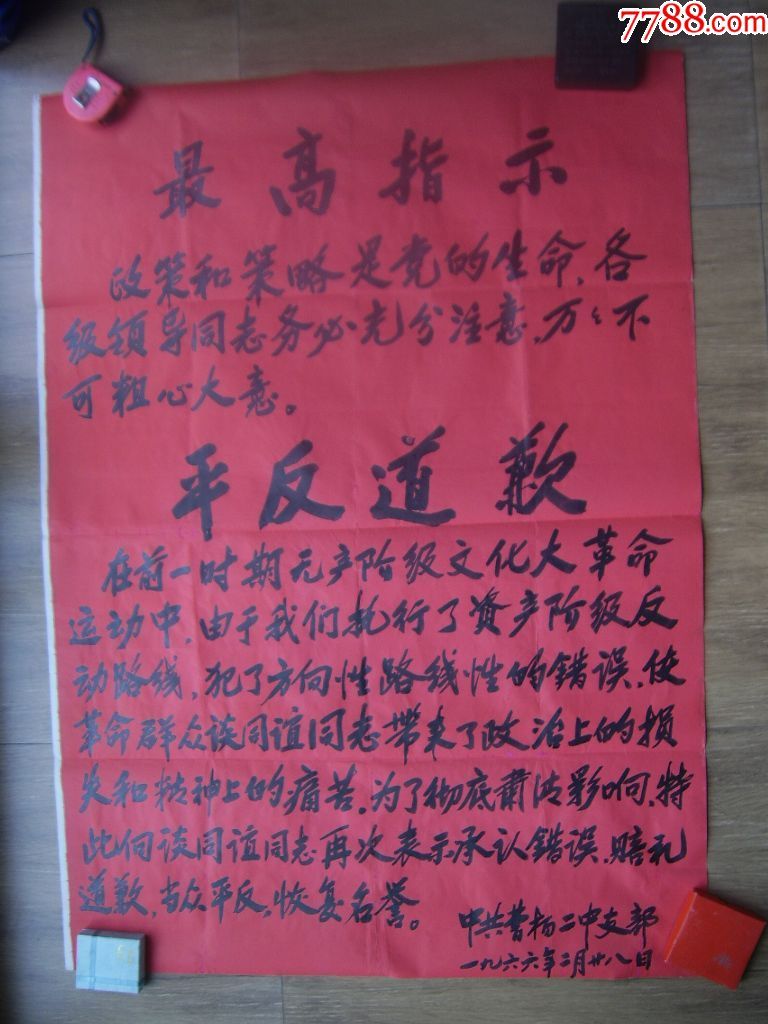 7788.com
最高指示
政策和策略是党的生命,各
级领导同志务必充分注意,万々不
可粗心大意。
平反道歉
在前一时期无产阶级文化大革命
运动中,由于我们执行了资产阶级反
动路线,犯了方向性路线性的错误,使
革命群众谈同谊同志带来了政治上的损
失和精神上的痛苦,为了彻底肃清影响,特
此向谈同谊同志再次表示承认错误,赔礼
道歉,当众平反,恢复名誉。
中共曹杨二中支部
一九六六年二月廿八日